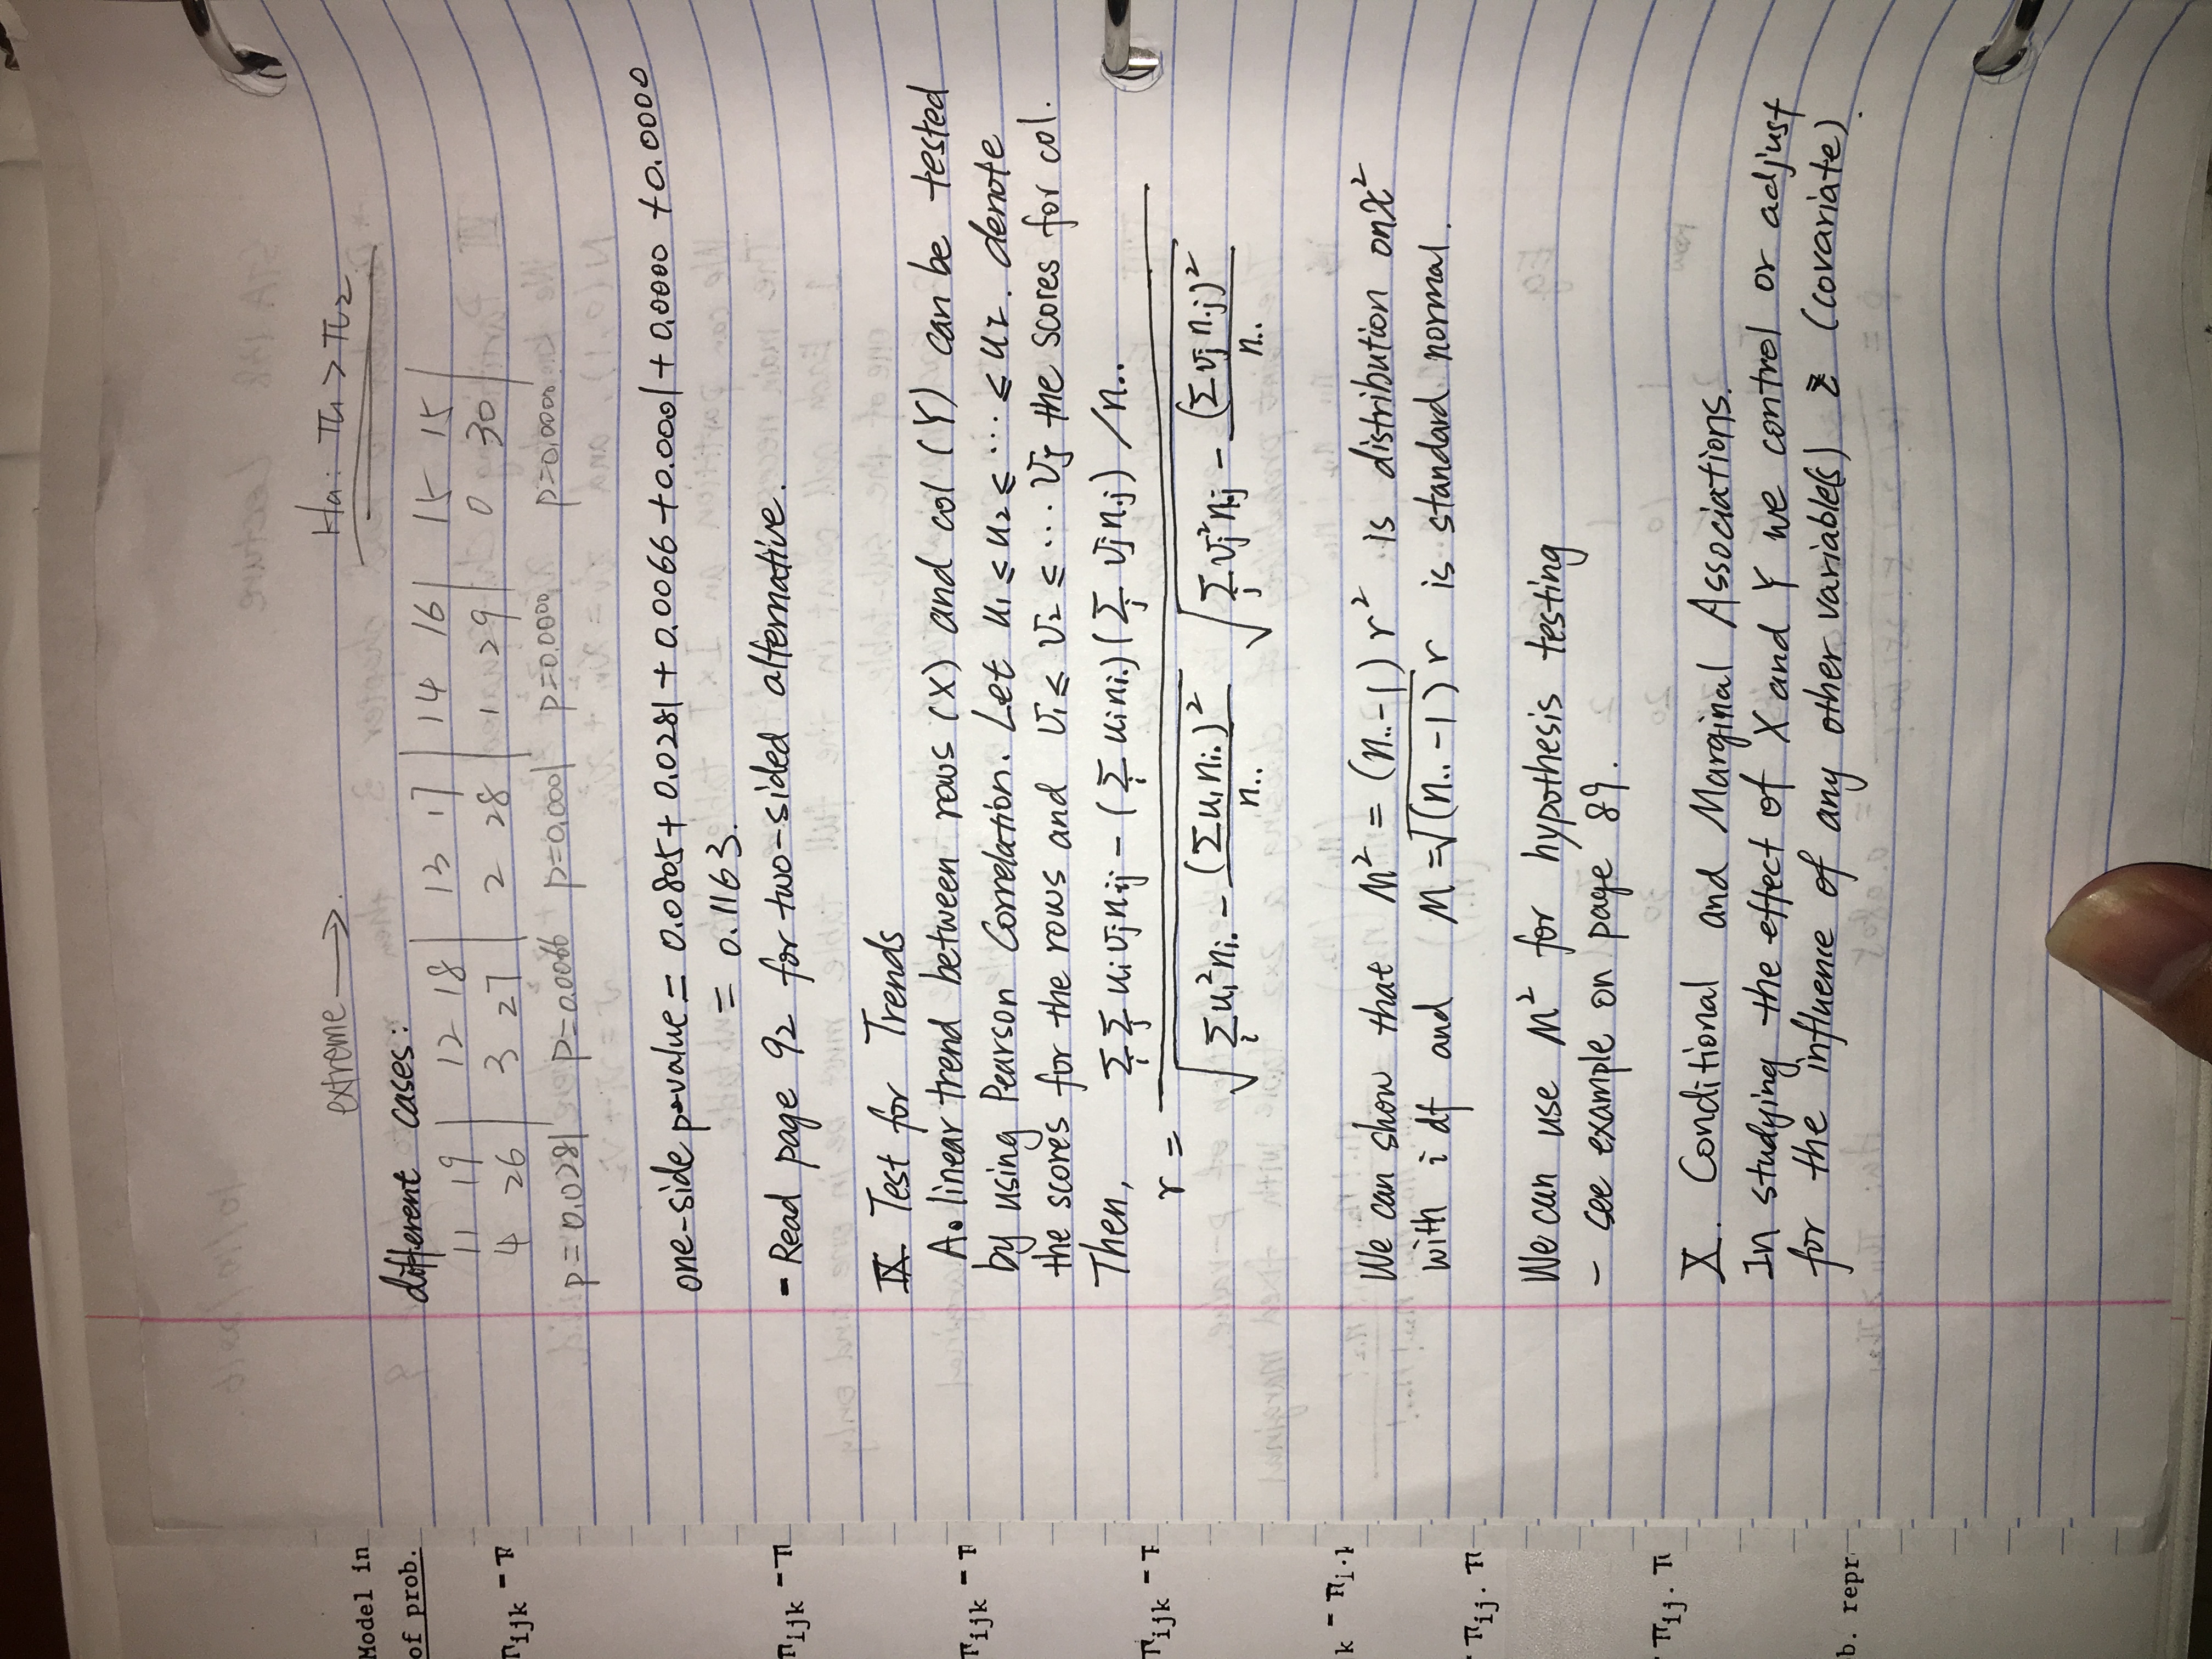 extreme → . Ha: π1 > π2
different cases:
11 19 | 12 18 | 13 17 | 14 16 | 15 15 |
4 26 | 3 27 | 2 28 | 1 29 | 0 30 |
p=0.0281 p=0.0066 p=0.0001 p=0.0000 p=0.0000
one-side p-value = 0.0805 + 0.0281 + 0.0066 + 0.0001 + 0.0000 + 0.0000
= 0.1163.
- Read page 92 for two-sided alternative.
IX Test for Trends
A. linear trend between rows (X) and col (Y) can be tested
by using Pearson Correlation. Let u1 ≤ u2 ≤ ... ≤ uI. denote
the scores for the rows and v1 ≤ v2 ≤ ... vJ the scores for col.
Then, Σi Σj ui vj nij - (Σi ui ni.) (Σj vj n.j) / n..
r =
√(Σi ui² ni. - (Σ ui ni.)² / n..) √(Σj vj² n.j - (Σ vj n.j)² / n..)
We can show that M² = (n.. - 1) r² is distribution on χ²
with i df and M = √(n.. - 1) r is standard normal.
We can use M² for hypothesis testing
- see example on page 89.
X. Conditional and Marginal Associations.
In studying the effect of X and Y we control or adjust
for the influence of any other variable(s) Z (covariate).
Model in
of prob.
πijk - π
πijk - π
πijk - π
πijk - π
k - πi.k
πij. π
πij. π
b. repr